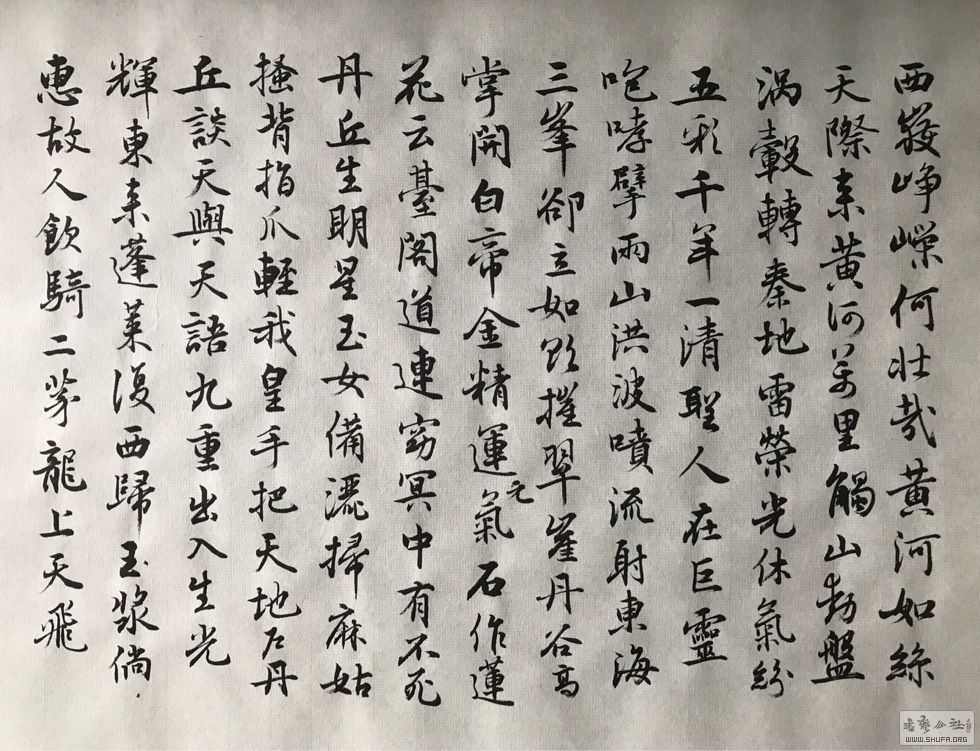 西嶽峥嶸何壮哉黄河如絲
天際来黄河萬里觸山動盤
涡轂轉秦地雷榮光休氣紛
五彩千年一清聖人在巨靈
咆哮擘兩山洪波噴流射東海
三峯卻立如欲摧翠崖丹谷高
掌開白帝金精運元氣石作蓮
花云臺閣道連窈冥中有不死
丹丘生明星玉女備灑掃麻姑
搔背指爪輕我皇手把天地户丹
丘談天與天語九重出入生光
輝東来蓬莱復西歸玉漿倘
惠故人飲騎二茅龍上天飛
书艺公社
WWW.SHUFA.ORG